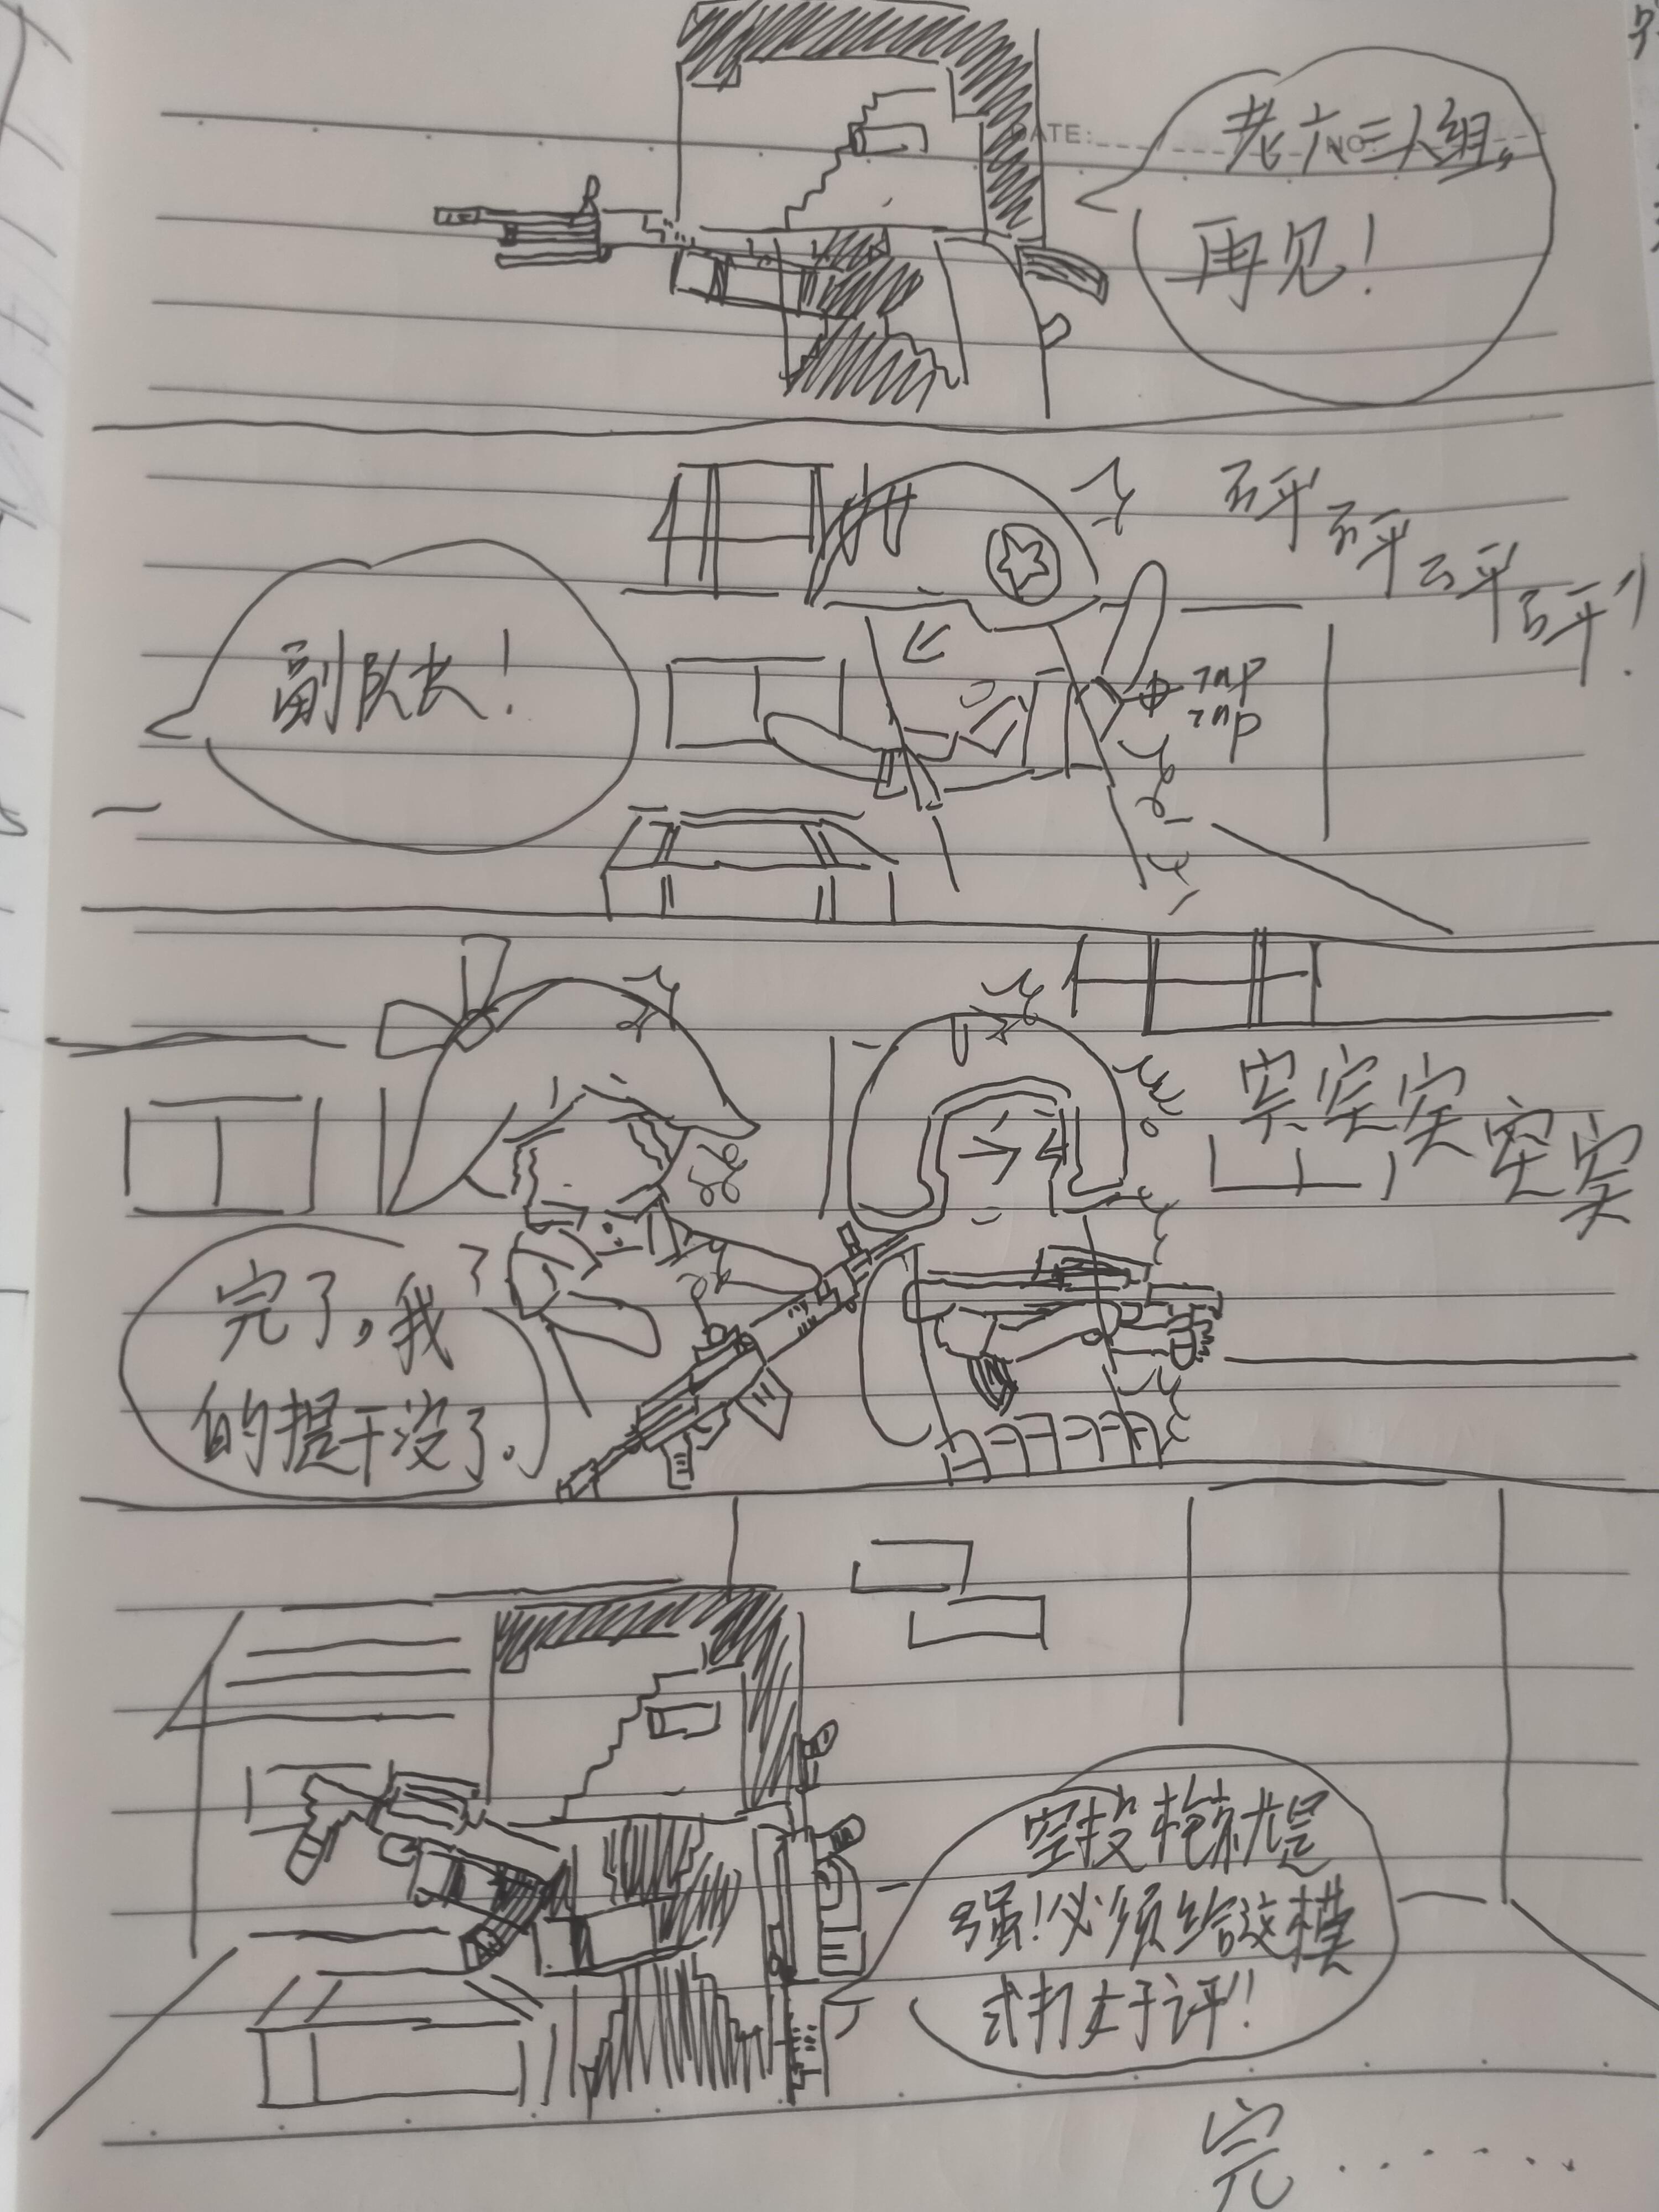 DATE:
NO:
老六三人组,
再见!
砰砰砰砰!
副队长!
突突突突突
完了,我
的提干没了。
空投枪就是
强!必须给这模
式打女子评!!
完......